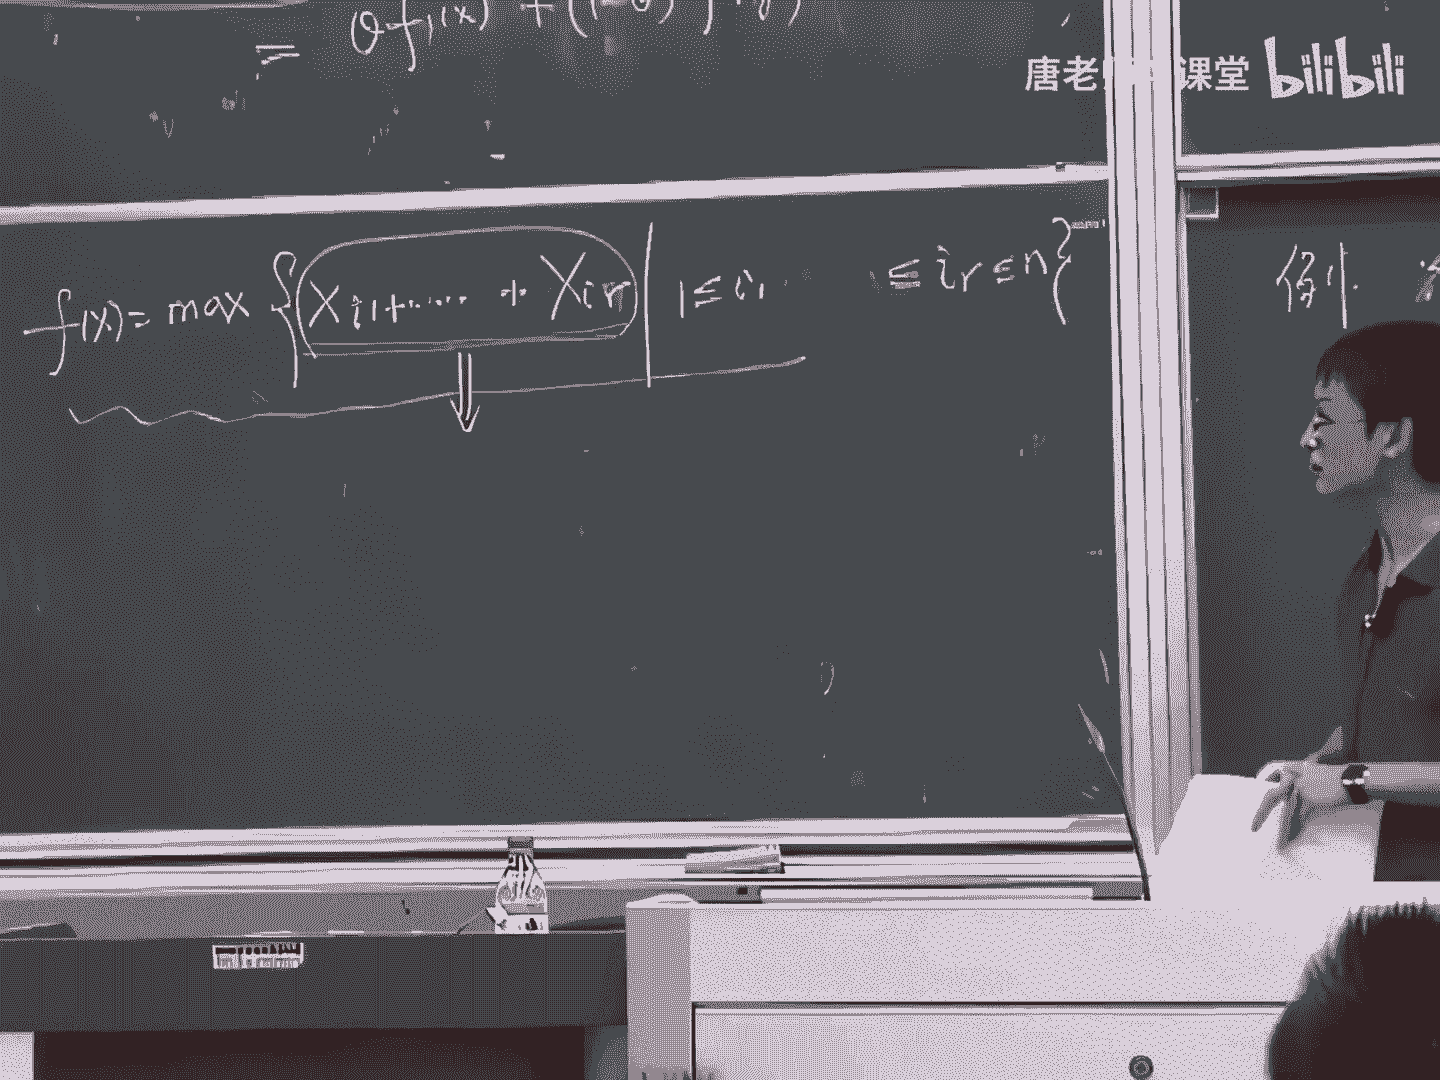 = θf₁(x) + (1-θ)
唐老 课堂 bilibili
f(x) = max { X_{i1} + ...... + X_{ir} | 1 ≤ i₁ ≤ i_r ≤ n }
例